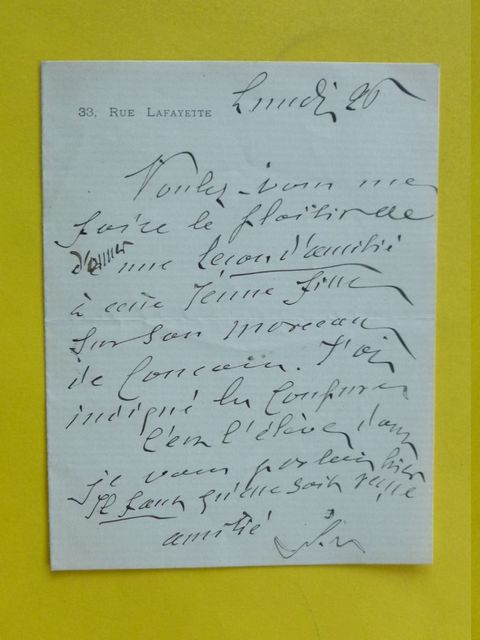 33, RUE LAFAYETTE
Lundi 26
Voulez-vous me
faire le plaisir de
donner une leçon d'amitié
à cette jeune fille
sur son morceau
de Concours. J'ai
indiqué les coupures
C'est l'élève dont
je vous parlais hier
Il faut qu'elle soit
amitié